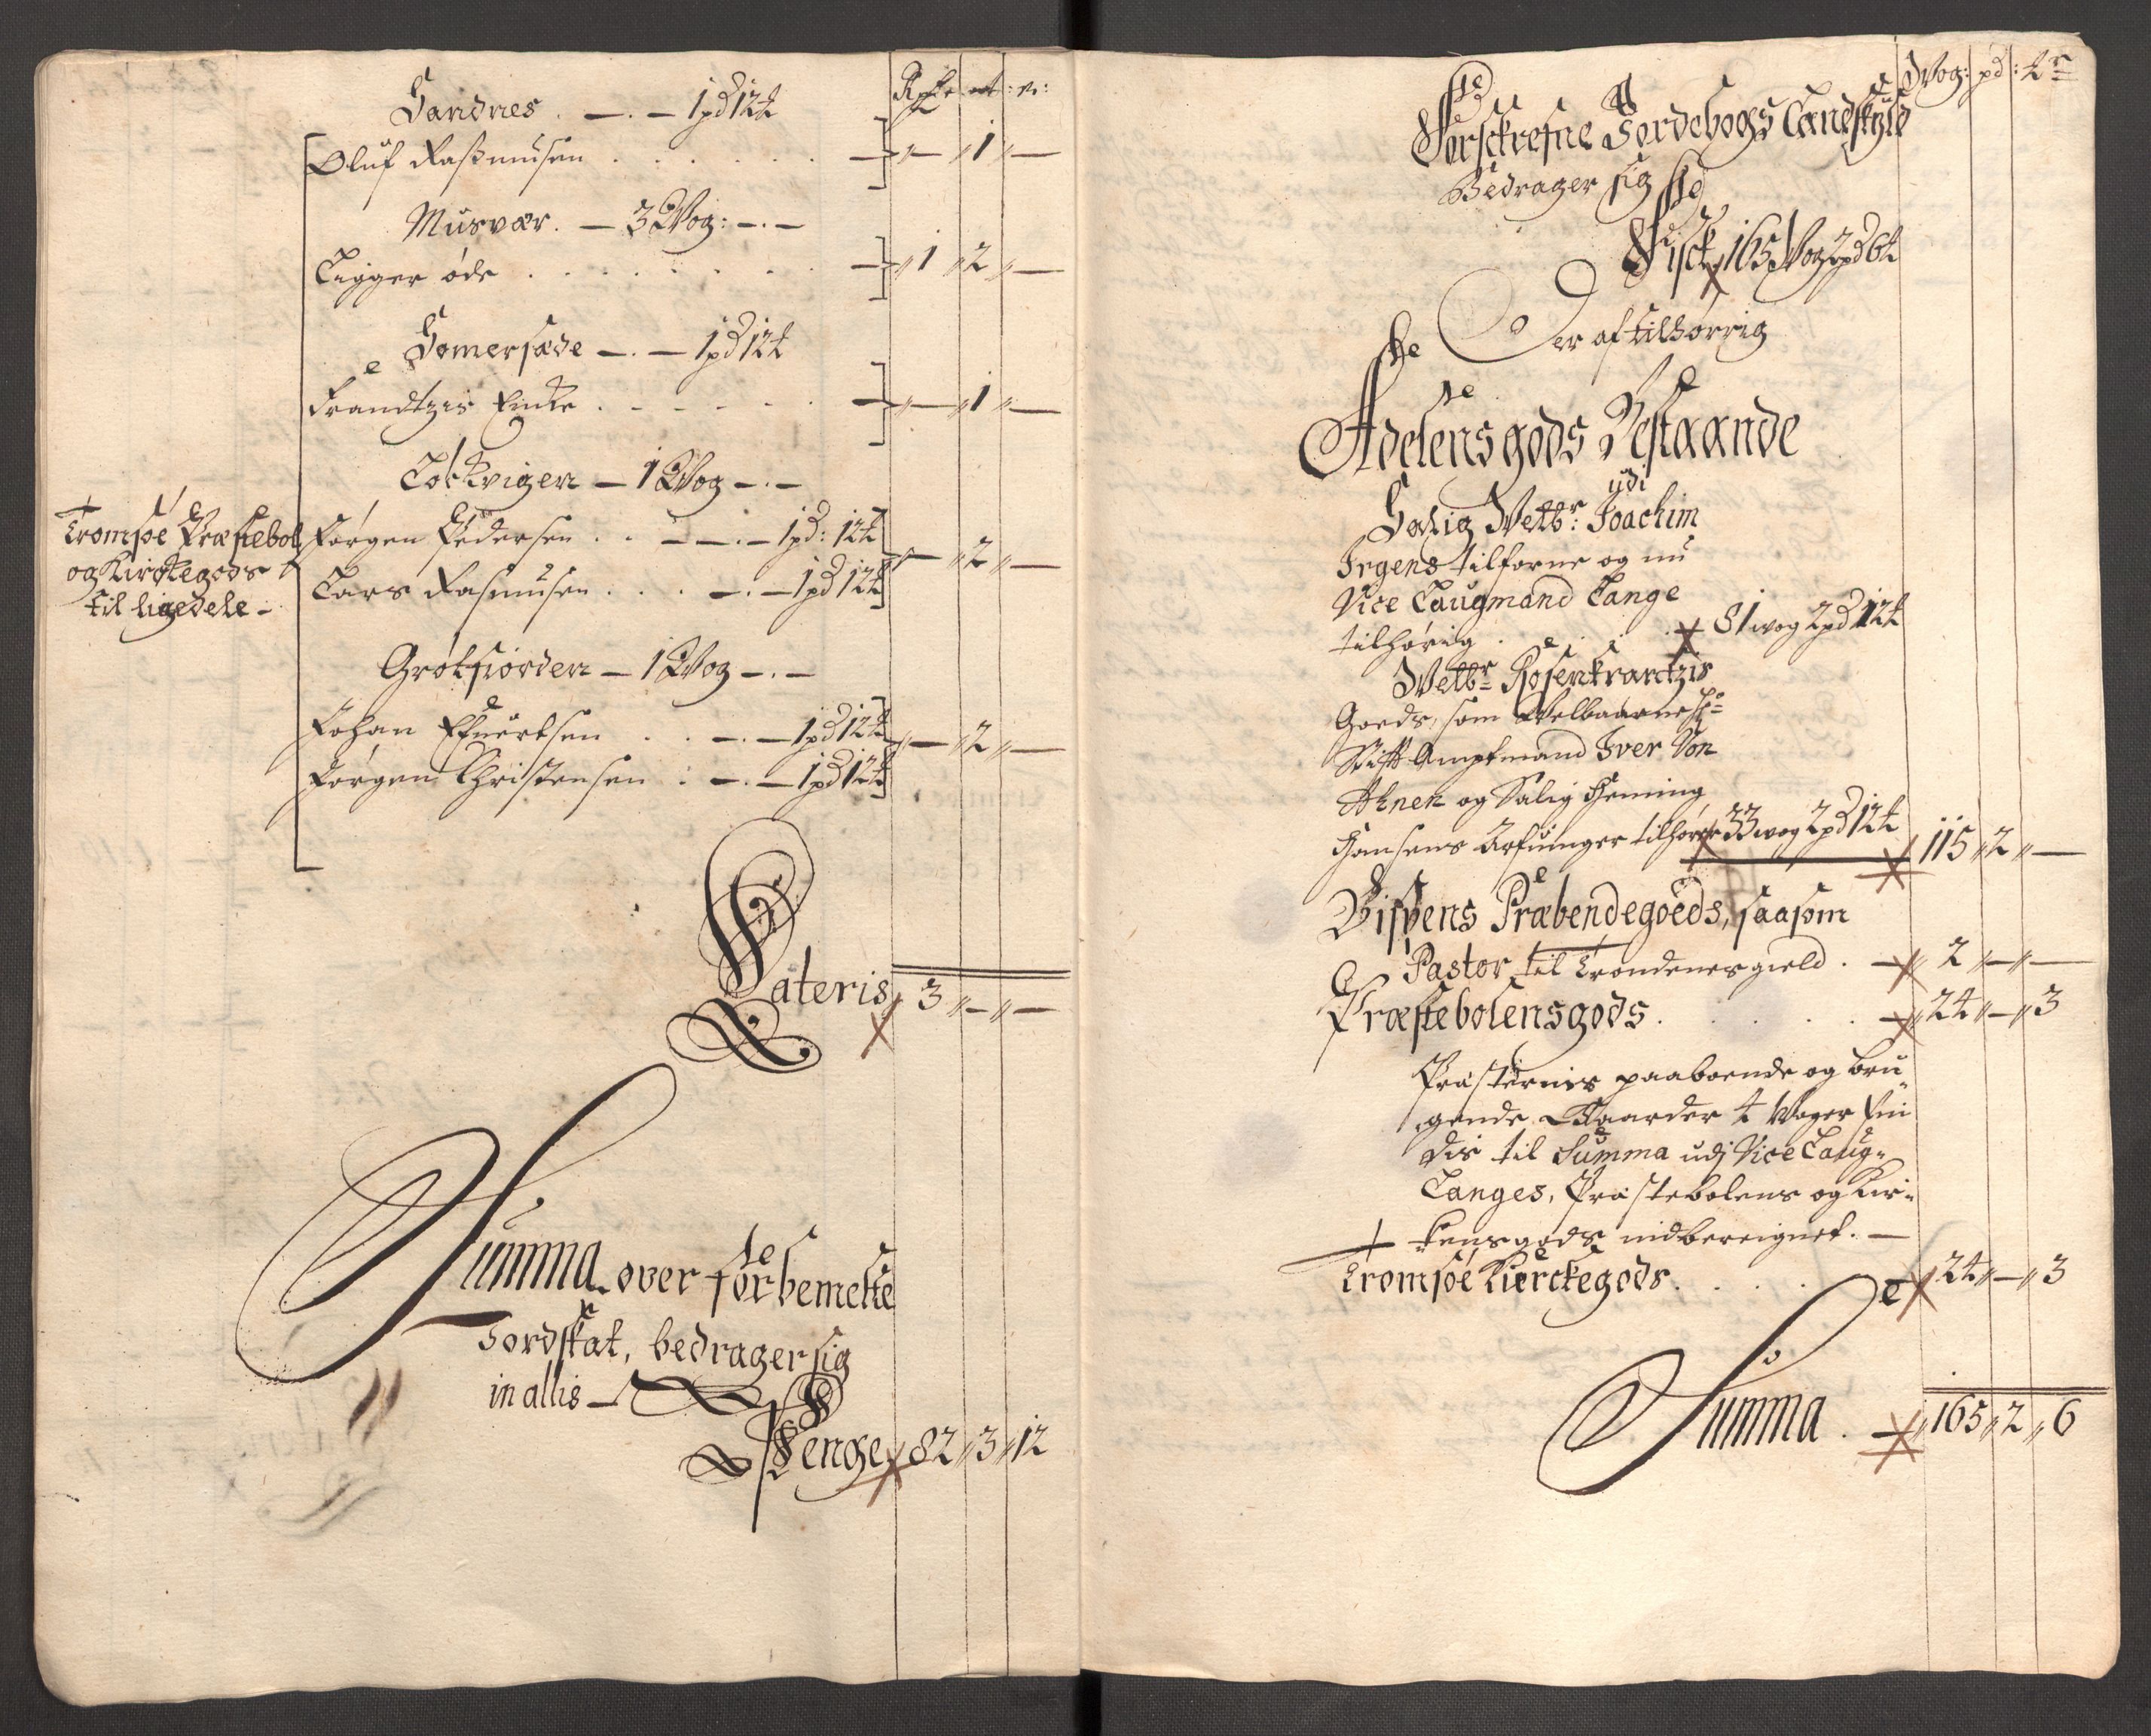 Rdr: mk: s:
Sandnes . — . — 1 pd 12 ℔
Oluf Rasmusen . . . . . — „— „1 „—
Musvær. — 3 Wog: — . —
Ligger øde . . . . . . — „1 „2 „—
Somersæde — . — 1 pd 12 ℔
Frandtzis Encke . . . . . — „— „1 „—
Lochvigen — 1 Wog — . —
Tromsøe Præstebol
og Kirckegods
til ligedele —
Jørgen Pedersen . . — — . — 1 pd: 12 ℔
Lars Rasmusen . . . — . — 1 pd 12 ℔ „— „2 „—
Grøtfiorden — 1 Wog — . —
Johan Efuertsen . . — . — 1 pd 12 ℔
Jørgen Christensen : — . — 1 pd 12 ℔ „— „2 „—
Lateris 3 „— „—
Summa over forbemelte
Jordskat, bedrager sig
in allis —
Penge 82 „3 „12
Wog: pd: ℔r
Forschrefne Jordebogs Landskyld
Bedrager sig
Fisk 165 Wog 2 pd 6 ℔
Der af tilhørrig
Adelens gods Bestaande
udi
Salig Welbr: Joachim
Irgens tilforne og nu
Vice Laugmand Lange
tilhørig . . . . 81 wog 2 pd 12 ℔
Welbr: Rosenkrantzis
Goeds, som Welbaarne Hr:
Stift Amptmand Iver Von
Ahnen og Salig Henning
Hansens Arfuinger tilhører 33 wog 2 pd 12 ℔ 115 „2 „—
Bispens Præbendegoeds, saasom
Pastor til Trondenes gield . — „2 „— „—
Præstebolens gods . . . . — „24 „— „3
Præsternis paaboende og bru
gende Gaarder 4 Woger fin
dis til Summa udj Vice Laug„
Langes, Præstebolens og Kir„
kens gods indbereignet. —
Tromsøe Kierckegods . . . . 24 „— „3
Summa . — „165 „2 „6